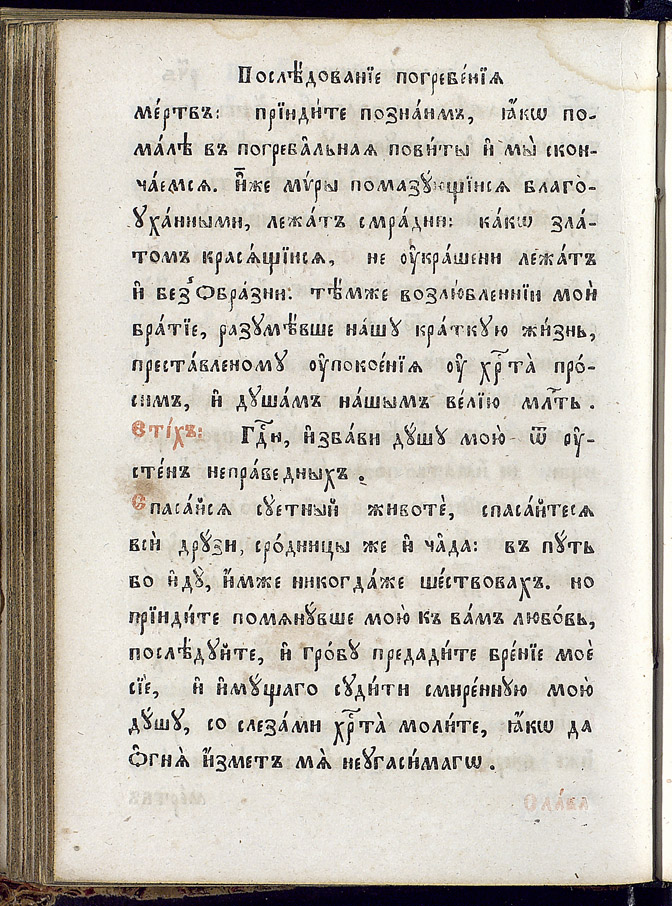 Послѣ́дованїе погребе́нїѧ
ме́ртвъ: прїиди́те позна́имъ, ꙗ҆́кѡ по-
ма́лѣ въ погреба́льнаѧ пови́ты и҆ мы̀ скон-
ча́емсѧ. и҆̀же мѵ́ры помазꙋ́ющїисѧ благо-
ꙋха́нными, лежа́тъ смра́дни: ка́кѡ зла́-
томъ красѧ́щїисѧ, не ᲂу҆кра́шени лежа́тъ
и҆ безѻбра́зни: тѣ́мже возлю́бленнїи мои̑
бра́тїе, разꙋмѣ́вше на́шꙋ кра́ткꙋю жи́знь,
преста́вленомꙋ ᲂу҆покое́нїѧ ᲂу҆ хрⷭ҇та̀ про́-
симъ, и҆ дꙋша́мъ на́шымъ ве́лїю млⷭ҇ть.
Сті́хъ: Гдⷭ҇и, и҆зба́ви дꙋ́шꙋ мою̀ ѿ ᲂу҆-
сте́нъ непра́ведныхъ.
Спаса́йсѧ сꙋ́етный животѐ, спаса́йтесѧ
всѝ дрꙋ́зи, сро́дницы же и҆ ча̑да: въ пꙋ́ть
бо и҆дꙋ̀, и҆́мже никогда́же ше́ствовахъ. но
прїиди́те помѧнꙋ́вше мою̀ къ ва́мъ любо́вь,
послѣ́дꙋйте, и҆ гро́бꙋ предади́те бре́нїе моѐ
сїѐ, и҆ и҆мꙋ́щаго сꙋди́ти смире́ннꙋю мою̀
дꙋ́шꙋ, со слеза́ми хрⷭ҇та̀ моли́те, ꙗ҆́кѡ да
ѻ҆гнѧ̀ и҆́зметъ мѧ̀ неꙋгаси́магѡ.